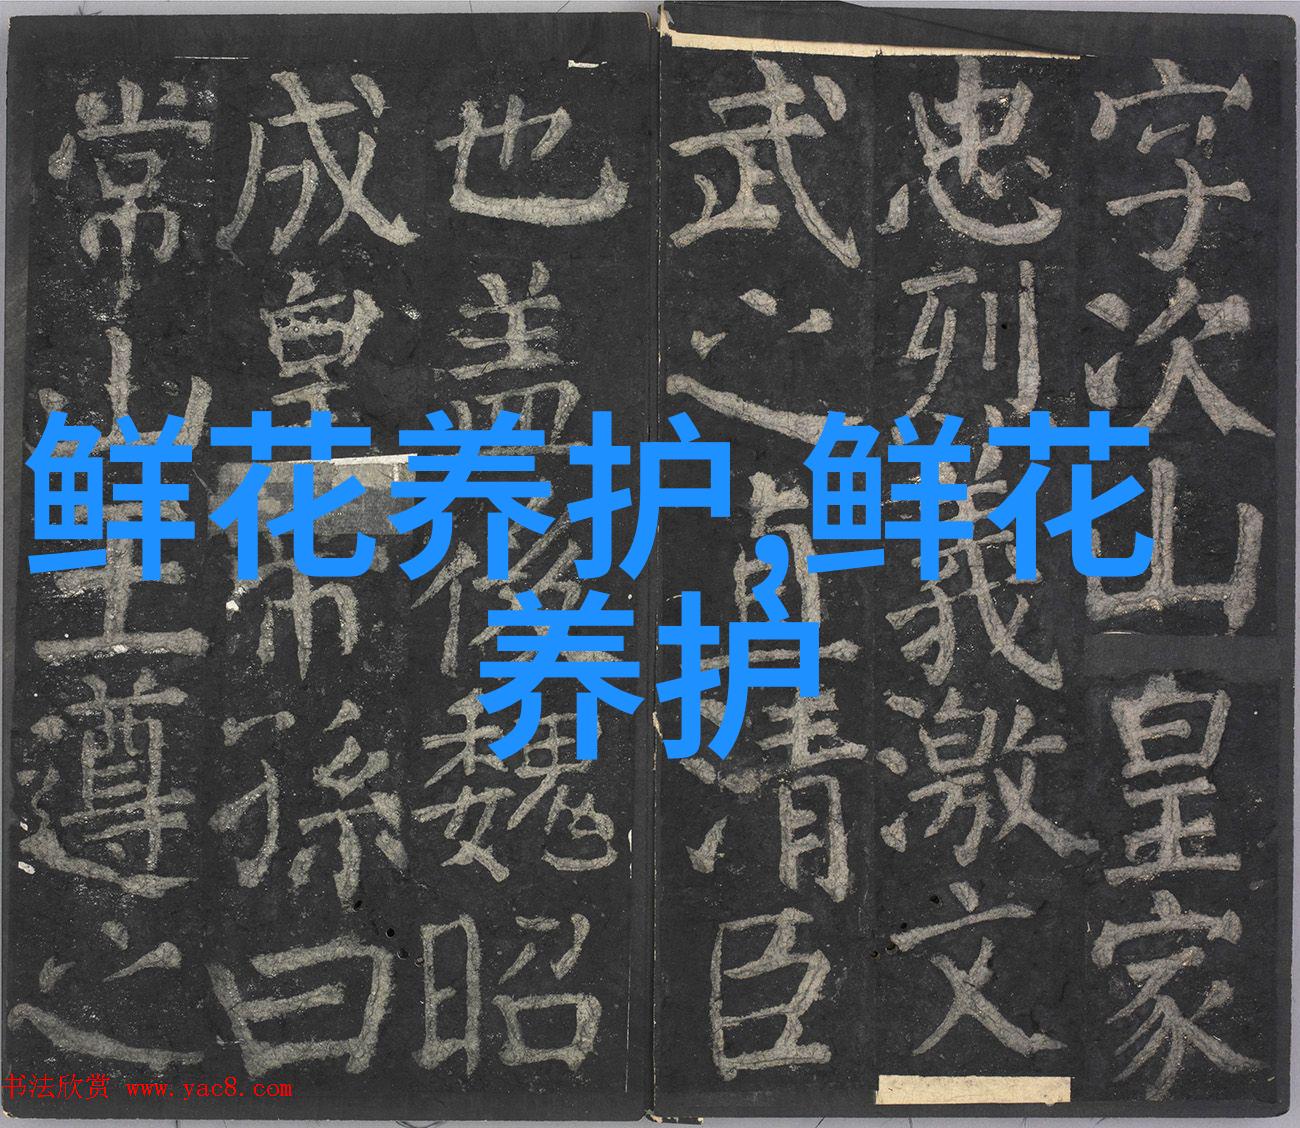 字次山皇家
忠烈義激文
武之直清臣
也盖後魏昭
成皇帝孫曰
常山王遵之
鲜花养护,鲜花
养护
书法欣赏 www.yac8.com